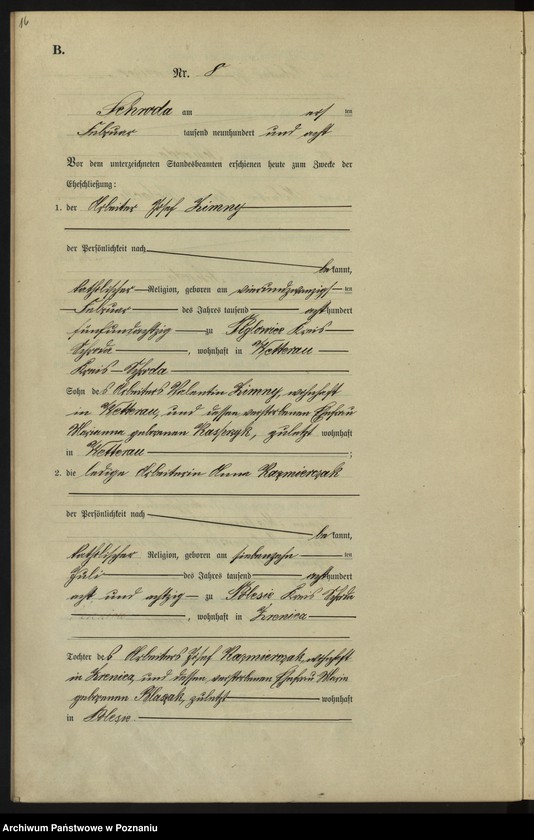 16
B.
Nr. 8
Schroda am ersten
Februar tausend neunhundert und acht
Vor dem unterzeichneten Standesbeamten erschienen heute zum Zwecke der
Eheschließung:
1. der Arbeiter Josef Zimny
der Persönlichkeit nach
bekannt,
katholischer Religion, geboren am vierundzwanzigsten
Februar des Jahres tausend achthundert
fünfundachtzig zu Pigłowice Kreis
Schroda, wohnhaft in Wetterau
Kreis Schroda
Sohn des Arbeiters Valentin Zimny, wohnhaft
in Wetterau, und dessen verstorbenen Ehefrau
Marianna geborenen Kasprzyk, zuletzt wohnhaft
in Wetterau;
2. die ledige Arbeiterin Anna Kazmierczak
der Persönlichkeit nach
bekannt,
katholischer Religion, geboren am siebenzehnten
Juli des Jahres tausend achthundert
acht und achtzig zu Polesie Kreis Schroda
, wohnhaft in Zrenica
Tochter des Arbeiters Josef Kazmierczak, wohnhaft
in Zrenica, und dessen verstorbenen Ehefrau Maria
geborenen Błaszak, zuletzt wohnhaft
in Polesie.
Archiwum Państwowe w Poznaniu